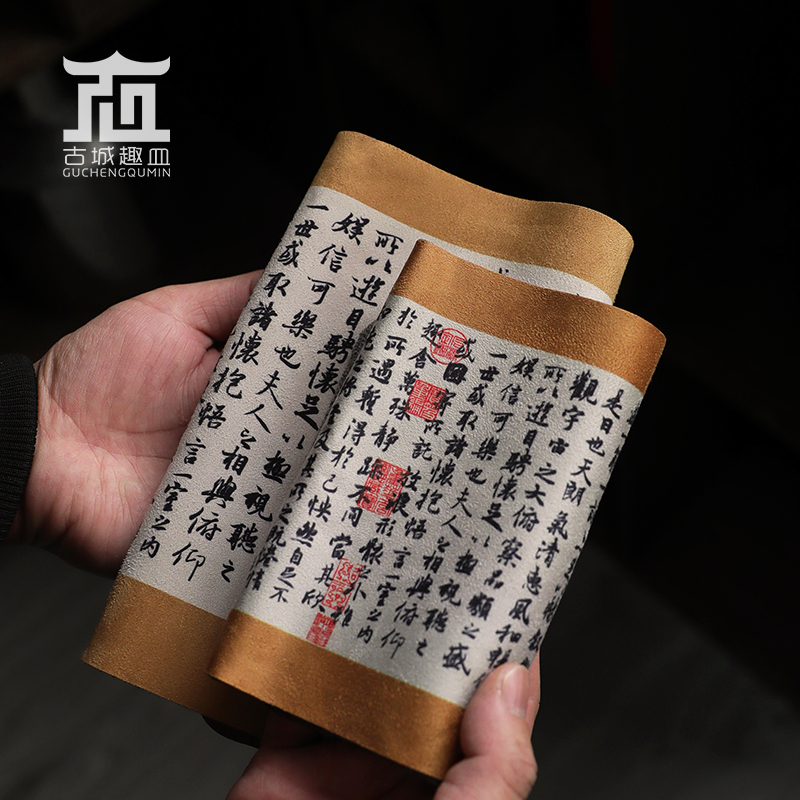 古城趣皿
GUCHENGQUMIN
所以遊目騁懷足以極視聽之
娛信可樂也夫人之相與俯仰
一世或取諸懷抱悟言一室之內
是日也天朗氣清惠風和暢
觀宇宙之大俯察品類之盛
所以遊目騁懷足以極視聽之
娛信可樂也夫人之相與俯仰
一世或取諸懷抱悟言一室之內
或因寄所託放浪形骸之外雖
趣舍萬殊靜躁不同當其欣
於所遇暫得於己怏然自足不